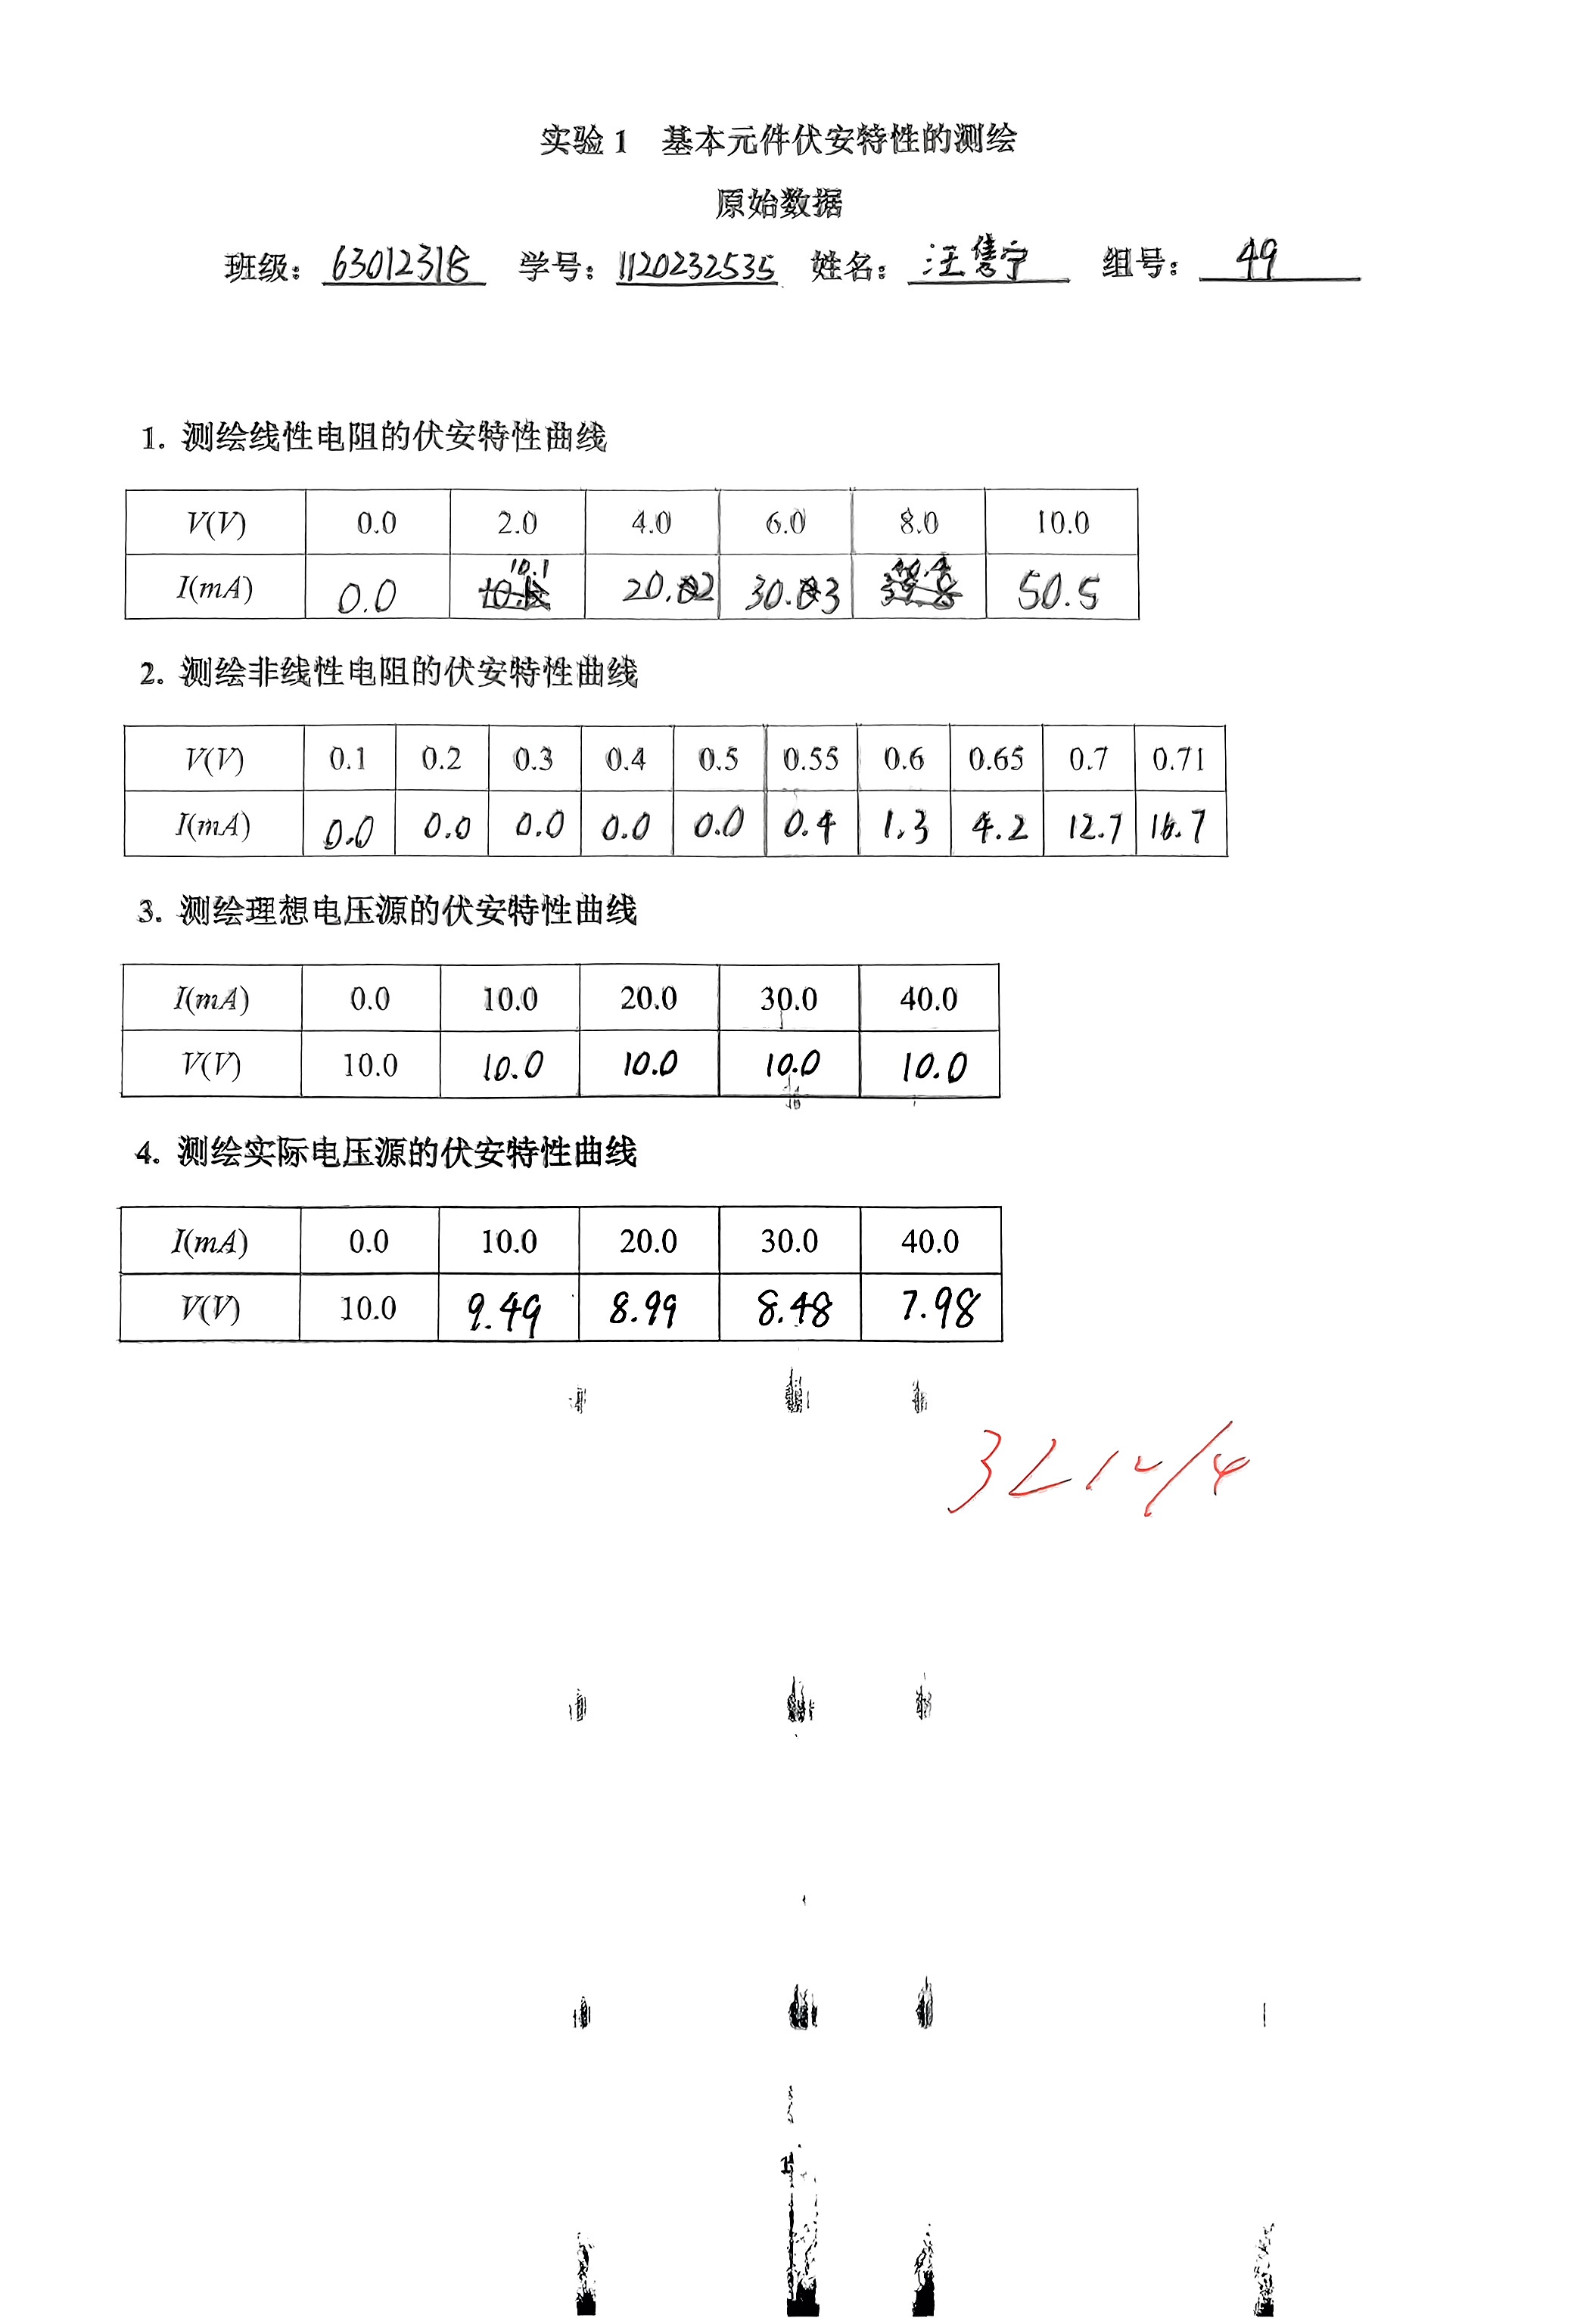 实验 1 基本元件伏安特性的测绘
原始数据
班级: 63012318 学号: 1120232535 姓名: 汪隽宁 组号: 49
1. 测绘线性电阻的伏安特性曲线
V(V) 0.0 2.0 4.0 6.0 8.0 10.0
I(mA) 0.0 10.1 20.2 30.3 50.5
2. 测绘非线性电阻的伏安特性曲线
V(V) 0.1 0.2 0.3 0.4 0.5 0.55 0.6 0.65 0.7 0.71
I(mA) 0.0 0.0 0.0 0.0 0.0 0.4 1.3 4.2 12.7 16.7
3. 测绘理想电压源的伏安特性曲线
I(mA) 0.0 10.0 20.0 30.0 40.0
V(V) 10.0 10.0 10.0 10.0 10.0
4. 测绘实际电压源的伏安特性曲线
I(mA) 0.0 10.0 20.0 30.0 40.0
V(V) 10.0 9.49 8.99 8.48 7.98